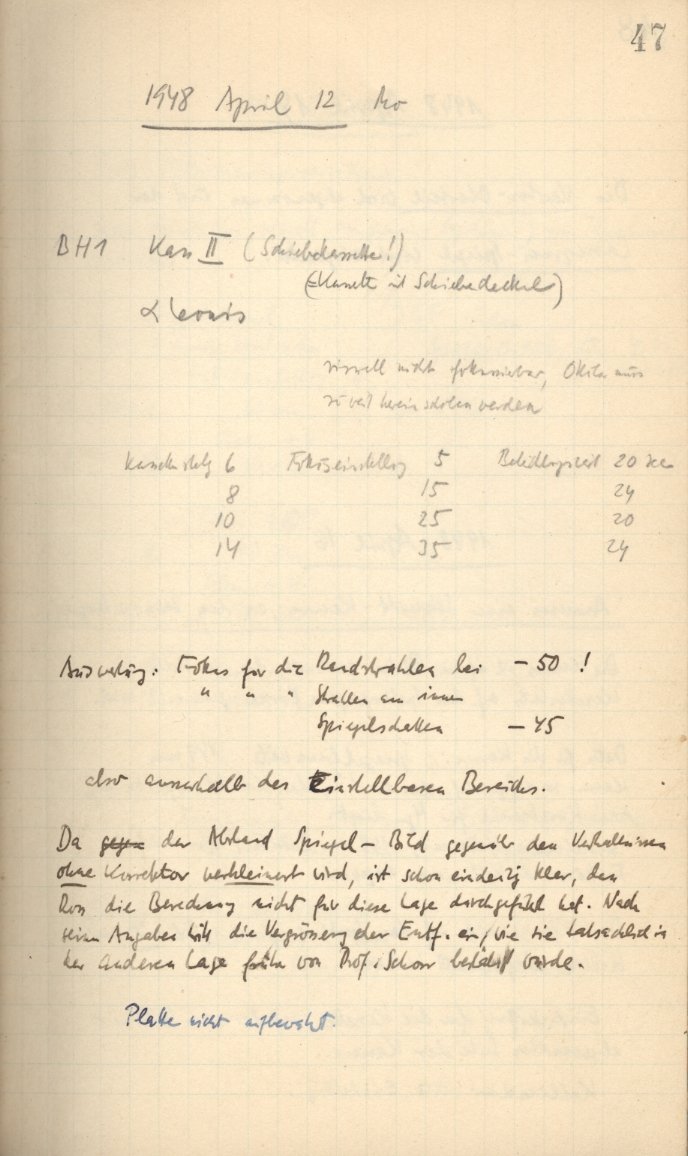 47
1948 April 12 Mo
BH1 Kass II (Schiebekassette!)
(= Kassette mit Schiebedeckel)
α Leonis
visuell nicht fokussierbar, Okular muss
zu weit herein schoben werden
Kassettenstellg 6 Fokuseinstellung 5 Belichtungszeit 20 sec
8 15 24
10 25 20
14 35 24
Auswertung: Fokus für die Randstrahlen bei - 50 !
" " " Strahlen am innern
Spiegelschatten - 45
also ausserhalb des Einstellbaren Bereiches.
Da gegen der Abstand Spiegel - Bild gegenüber den Verhältnissen
ohne Korrektor verkleinert wird, ist schon eindeutig klar, dass
Ros die Berechnung nicht für diese Lage durchgeführt hat. Nach
seinen Angaben tritt die Vergrösserung der Entf. ein, wie sie tatsächlich in
der anderen Lage früher von Prof. Schorr bestätigt wurde.
Platte nicht aufbewahrt.